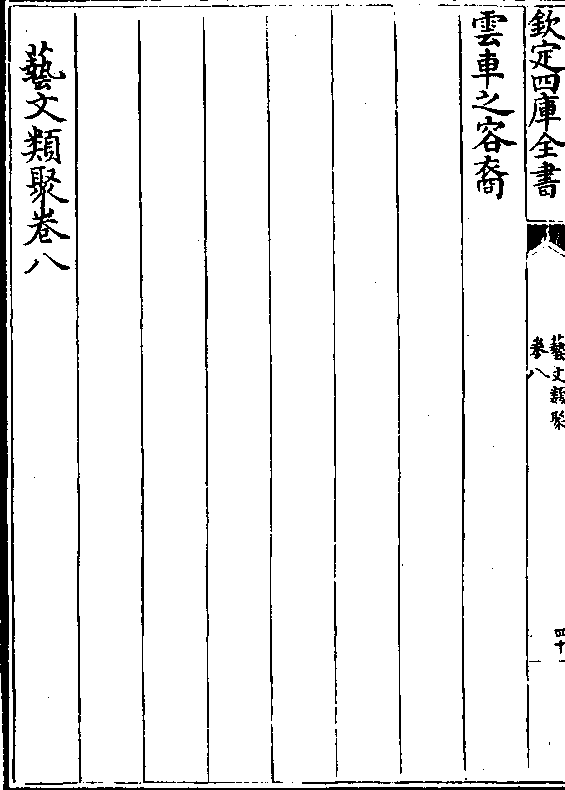 欽定四庫全書
藝文類聚
卷八
四十
雲車之容裔
藝文類聚卷八